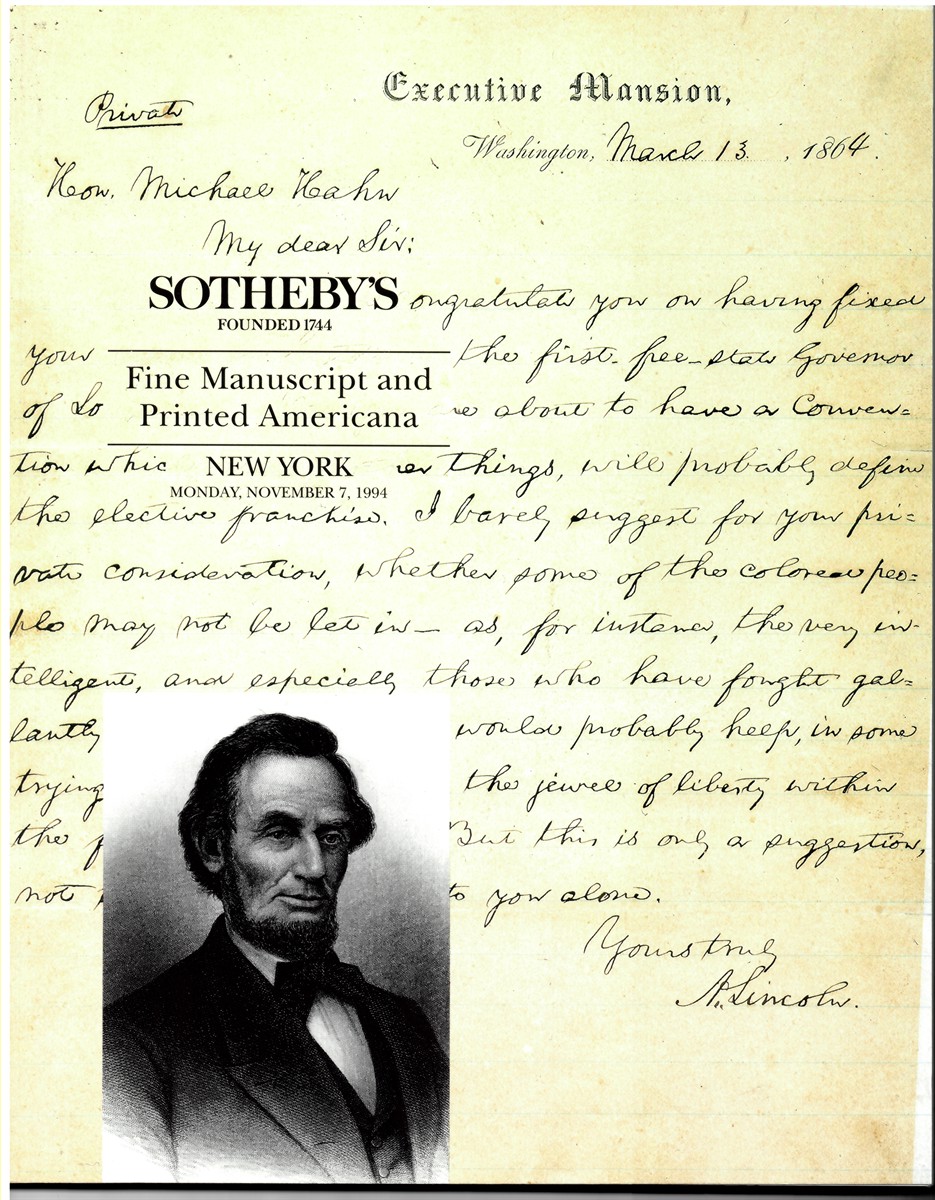 Executive Mansion,
Private
Washington, March 13, 1864.
Hon. Michael Hahn
My dear Sir:
SOTHEBY'S
FOUNDED 1744
ongratulate you on having fixed
your
the first-free-state Governor
of Lo
Fine Manuscript and
Printed Americana
re about to have a Conven=
tion whic
NEW YORK
er things, will probably define
MONDAY, NOVEMBER 7, 1994
the elective franchise. I barely suggest for your pri=
vate consideration, whether some of the colored peo=
ple may not be let in— as, for instance, the very in-
telligent, and especially those who have fought gal=
lantly
would probably help, in some
trying
the jewel of liberty within
the f
But this is only a suggestion,
not
to you alone.
Yours truly
A. Lincoln.